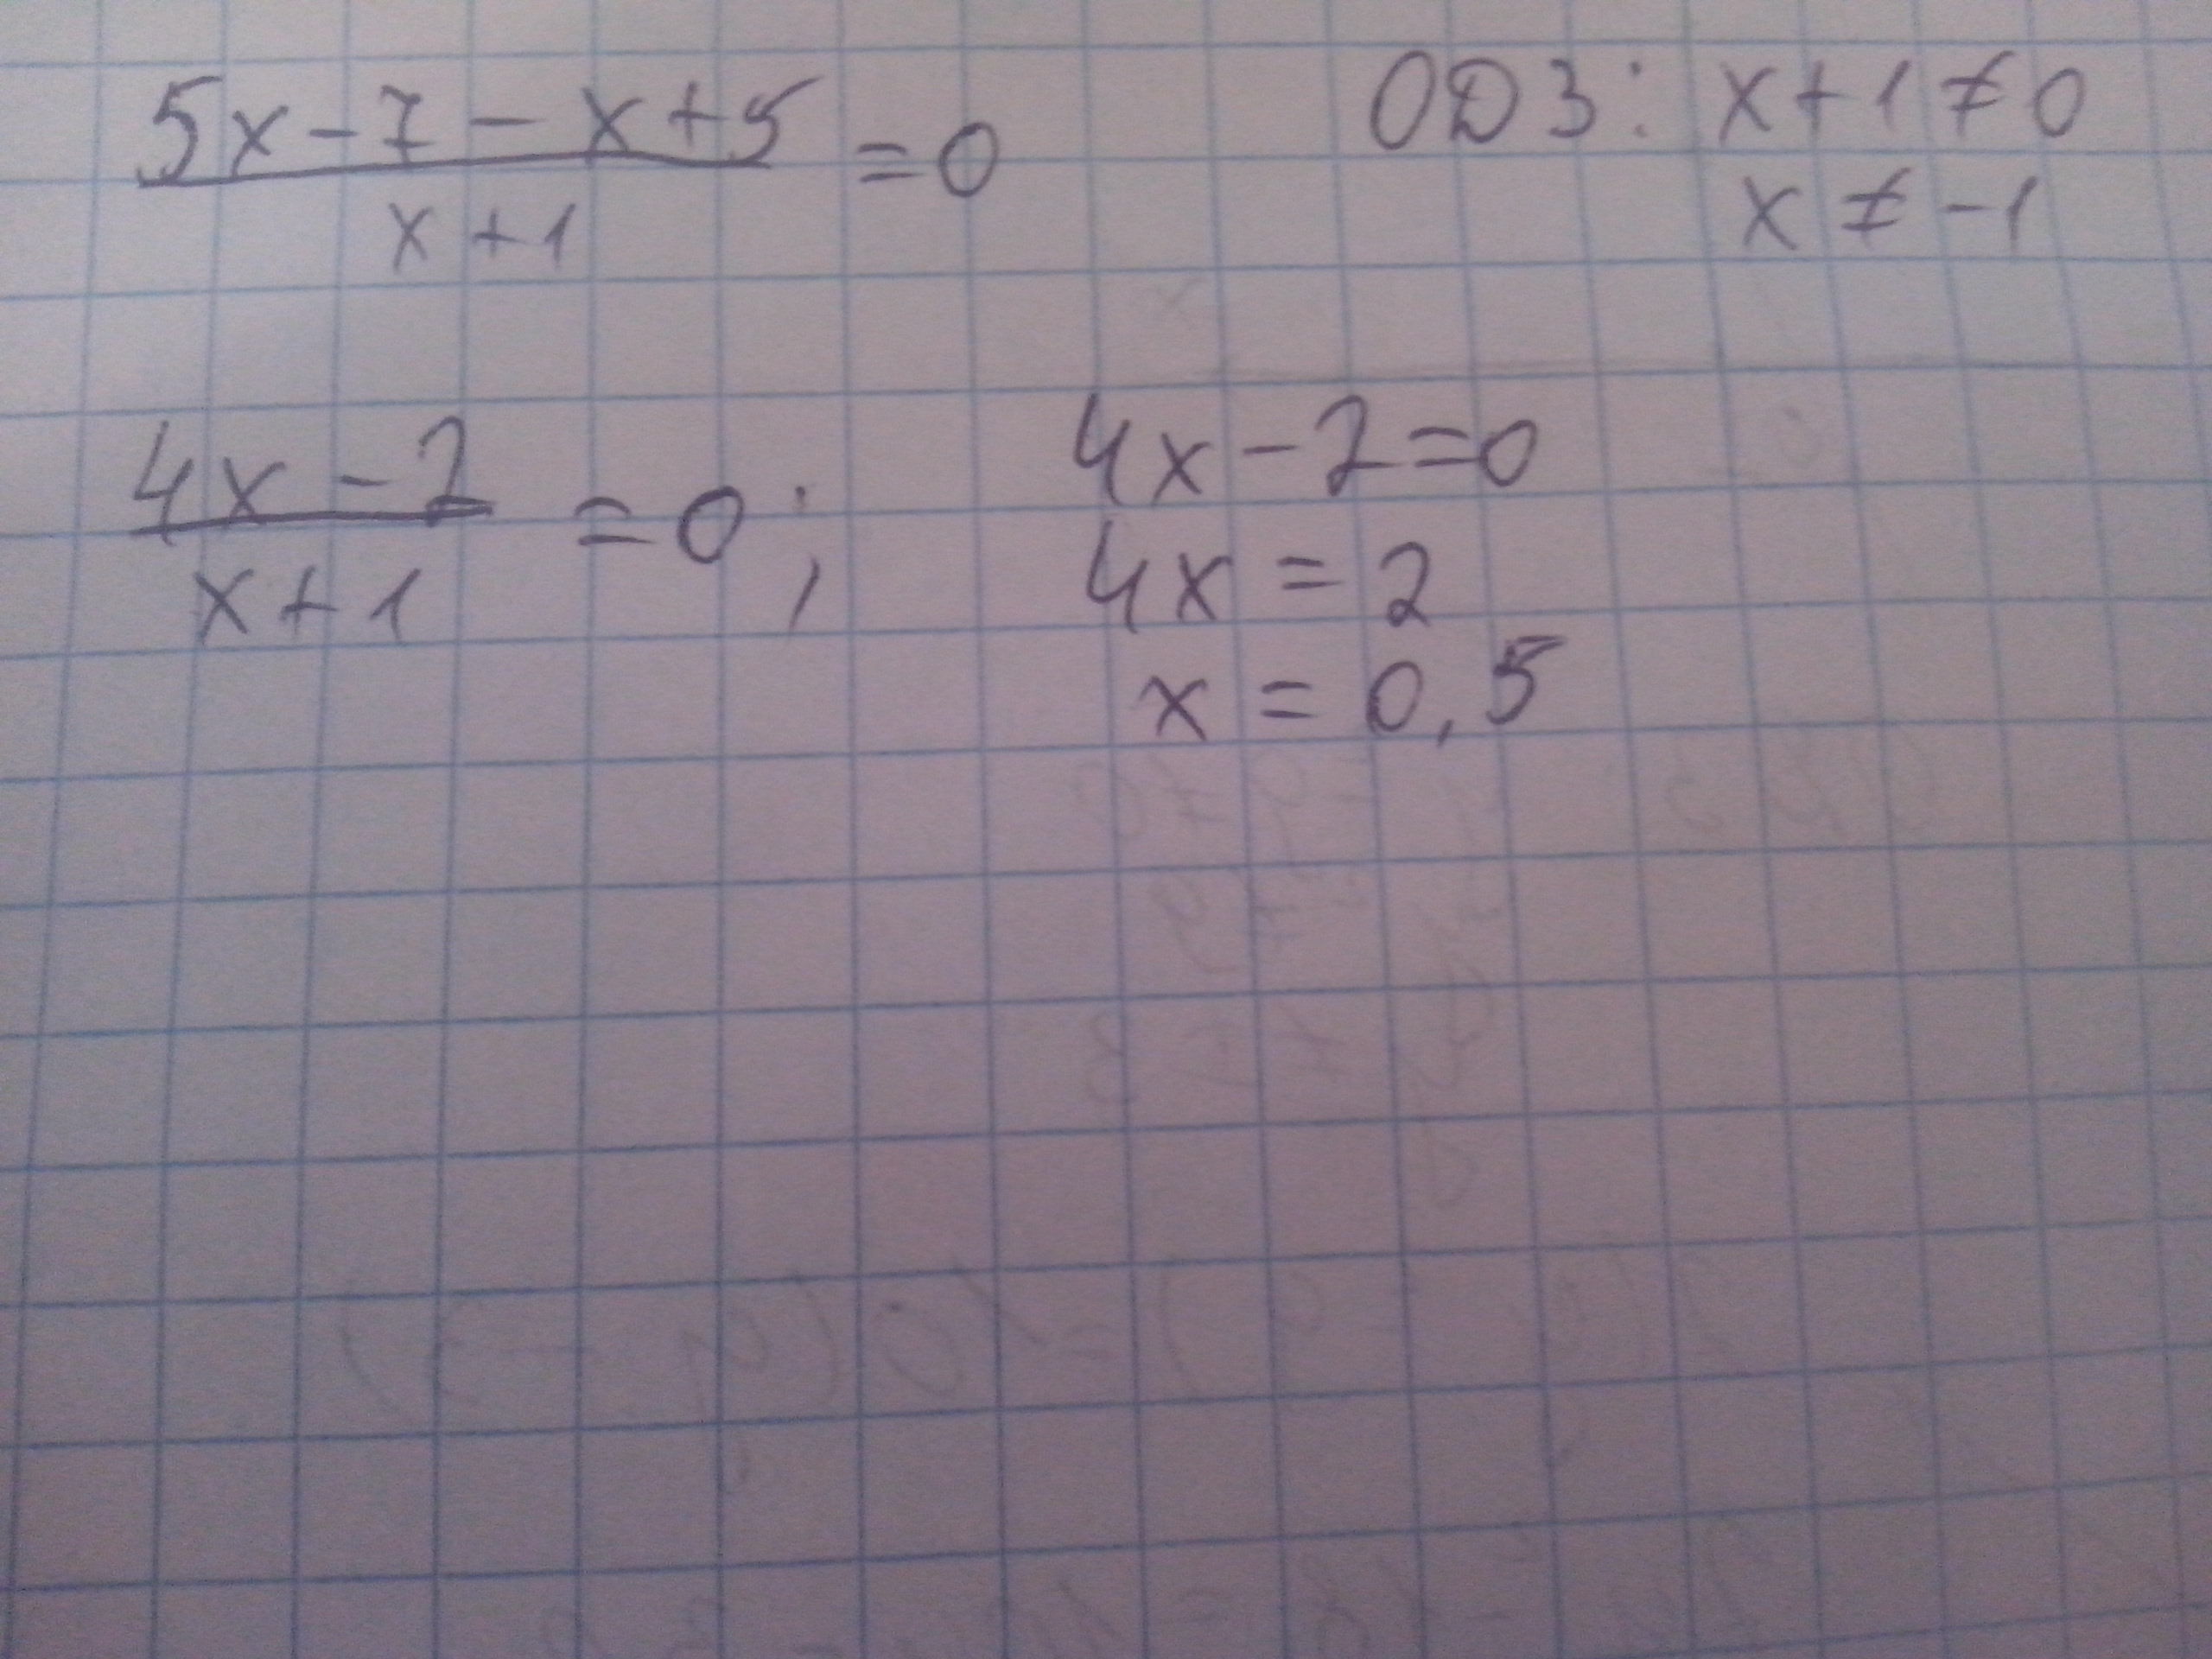 5x-7-x+5 = 0
x+1
ОДЗ: x+1≠0
x≠-1
4x-2 = 0;
x+1
4x-2=0
4x=2
x=0,5